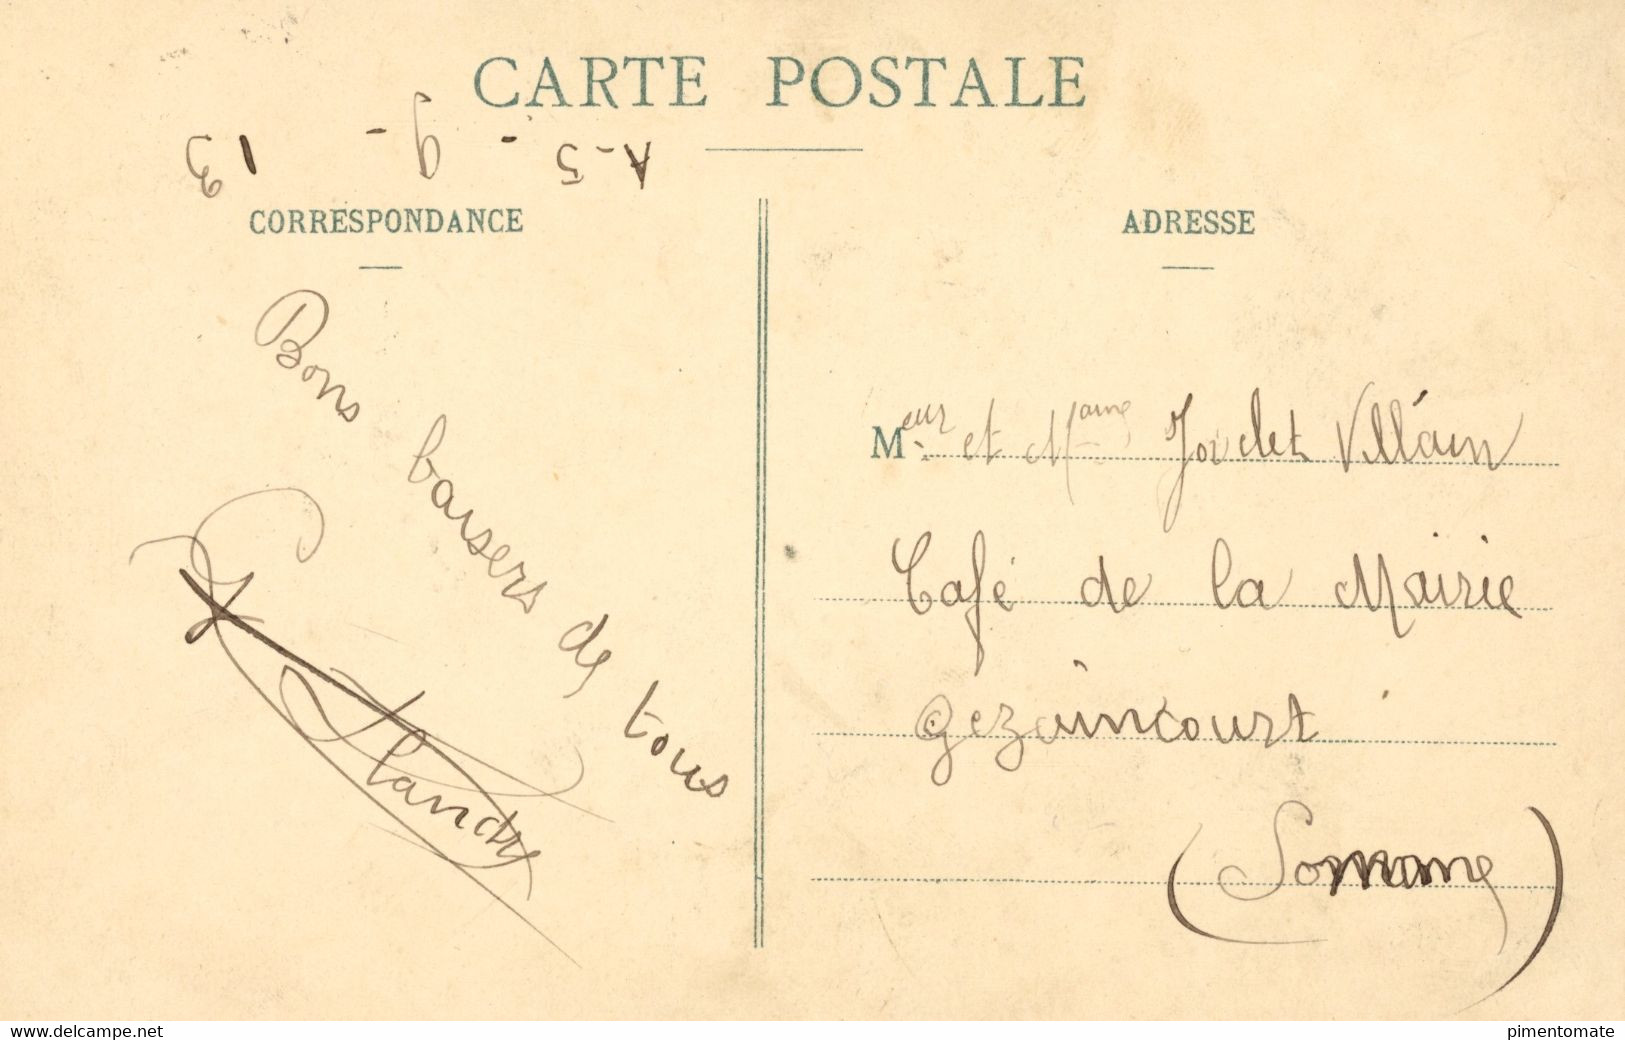 CARTE POSTALE
A-5 - 9 - 13
CORRESPONDANCE
Bons baisers de tous
ADRESSE
Meur et Mame Jovelet Villain
Café de la Mairie
Gezaincourt
(Somme)
www.delcampe.net
pimentomate